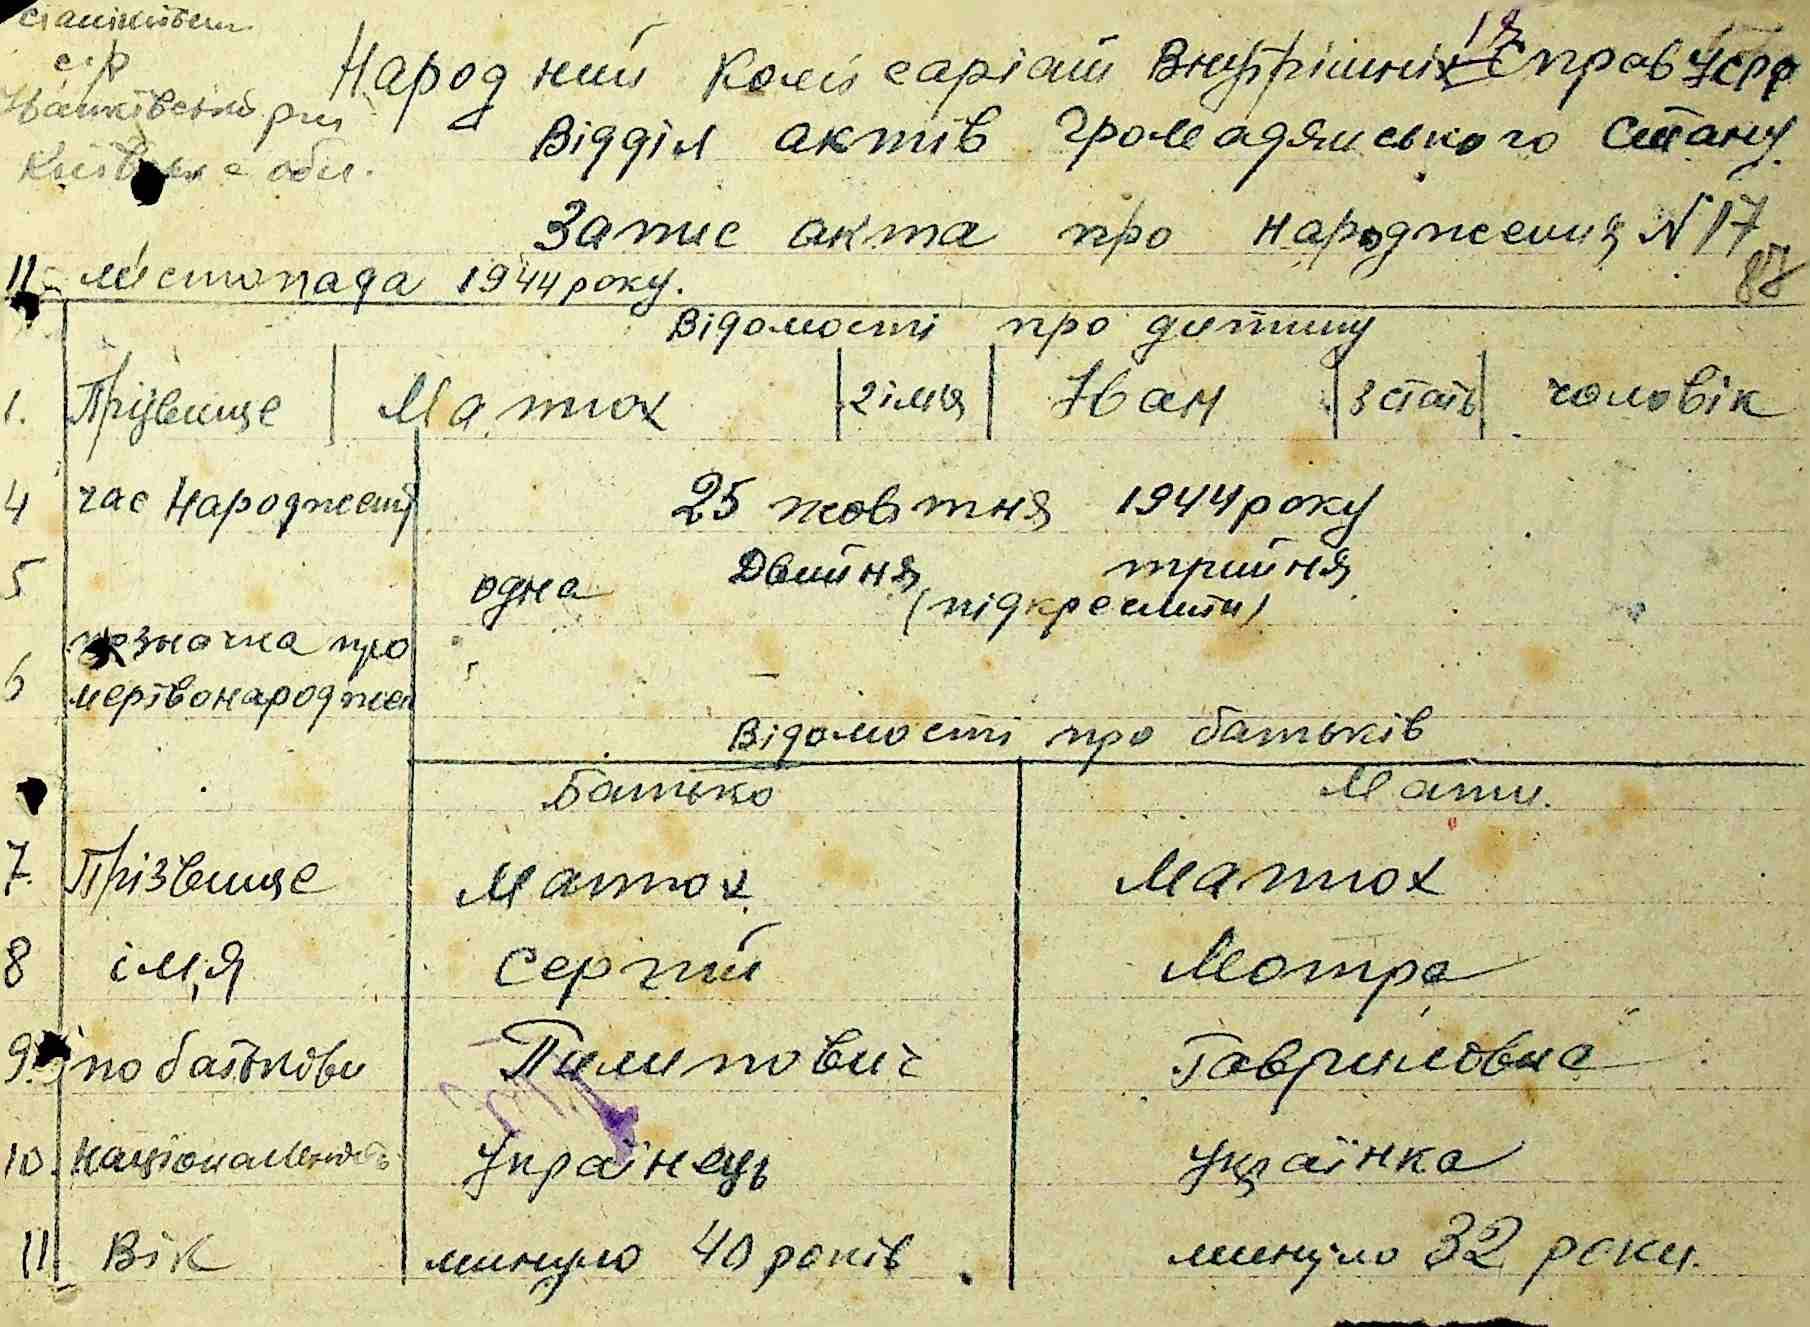 с/р
Київська обл.
18
Народний Комісаріат Внутрішніх Справ УСРР
Відділ актів громадянського стану
Запис акта про народження N 17
87
11 листопада 1944 року.
Відомості про дитину
1. Прізвище Матюх 2 імя Іван 3 стать чоловік
4 час народження 25 жовтня 1944 року
5 одна двийня трийня
(підкреслити)
6 позначка про
мертвонароджен —
Відомості про батьків
Батько Мати.
7. Прізвище Матюх Матюх
8 ім,я Сергій Мотра
9. по батькови Пилипович Гавриловна
10. національність Українець Українка
11 Вік минуло 40 років минуло 32 роки.